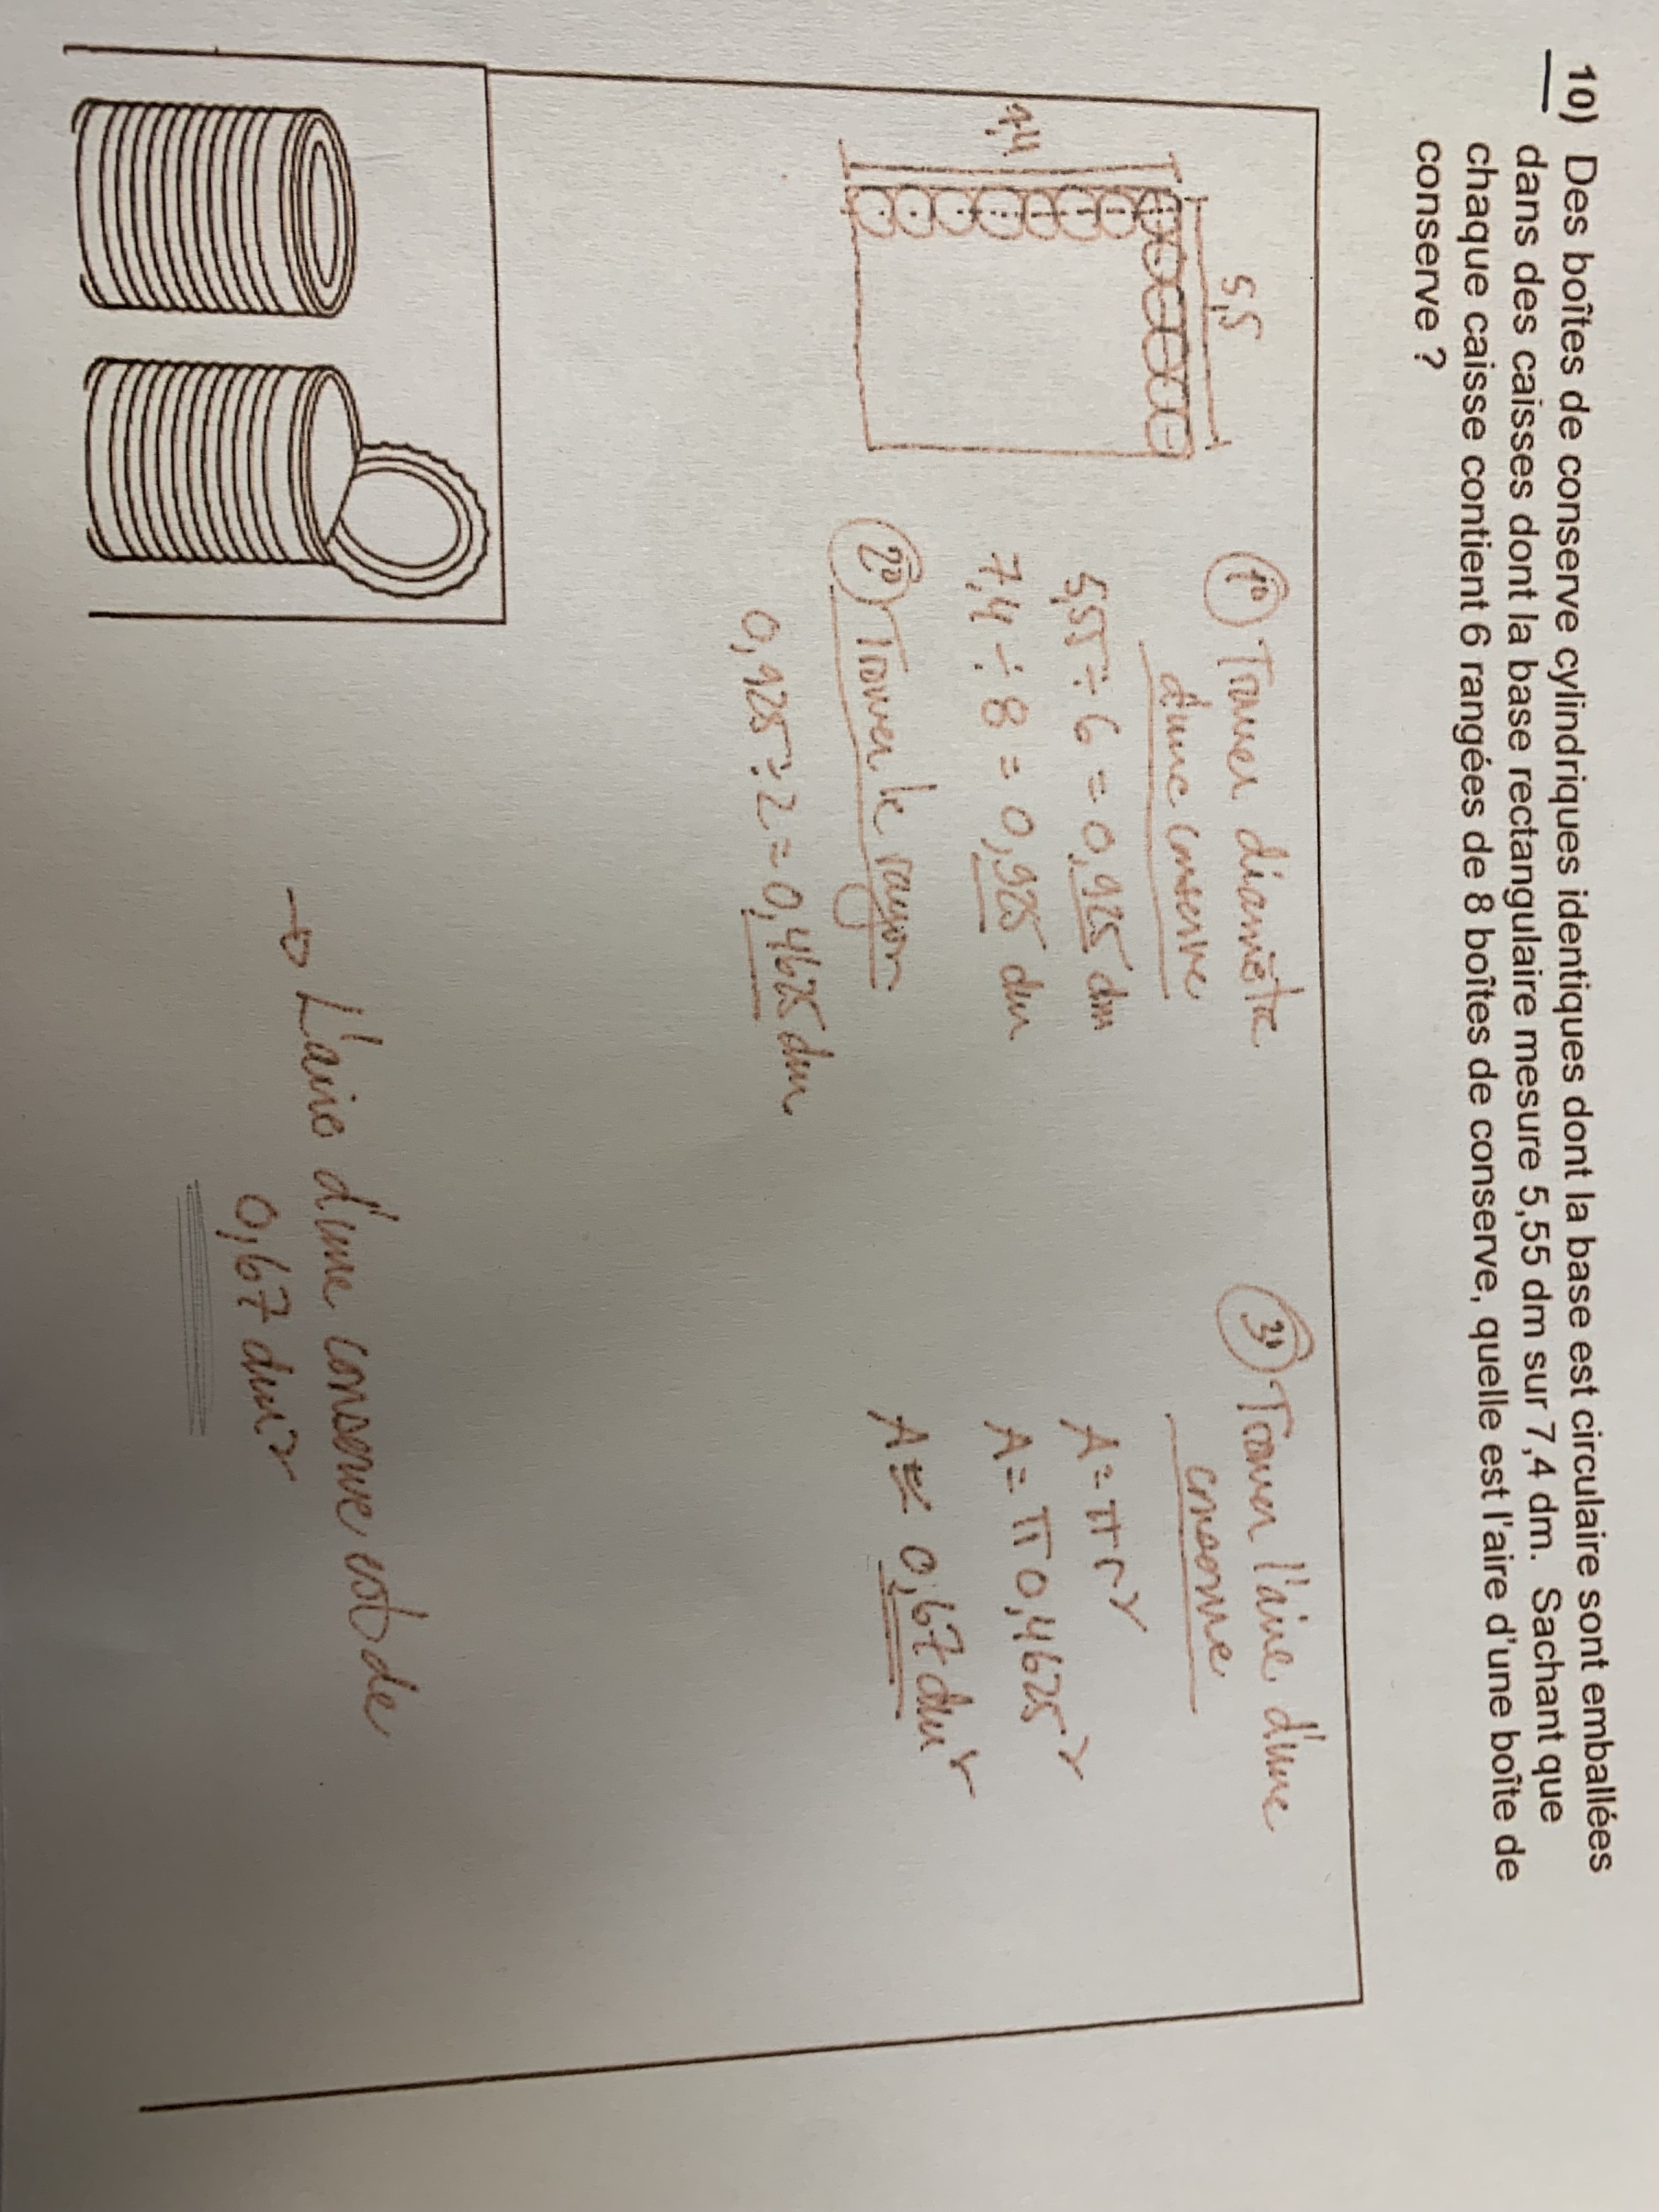 10) Des boîtes de conserve cylindriques identiques dont la base est circulaire sont emballées
dans des caisses dont la base rectangulaire mesure 5,55 dm sur 7,4 dm. Sachant que
chaque caisse contient 6 rangées de 8 boîtes de conserve, quelle est l'aire d'une boîte de
conserve ?
5,5
7,4
1° Trouver diamètre
d'une conserve
5,55 ÷ 6 = 0,925 dm
7,4 ÷ 8 = 0,925 dm
2° Trouver le rayon
0,925 ÷ 2 = 0,4625 dm
3° Trouver l'aire d'une
conserve
A = π r²
A = π 0,4625²
A ≈ 0,67 dm²
→ L'aire d'une conserve est de
0,67 dm²